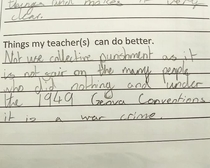 things makes it very
clear.
Things my teacher(s) can do better.
Not use collective punishment as it
is not fair on the many people
who did nothing and under
the 1949 Genva Conventions
it is a war crime.